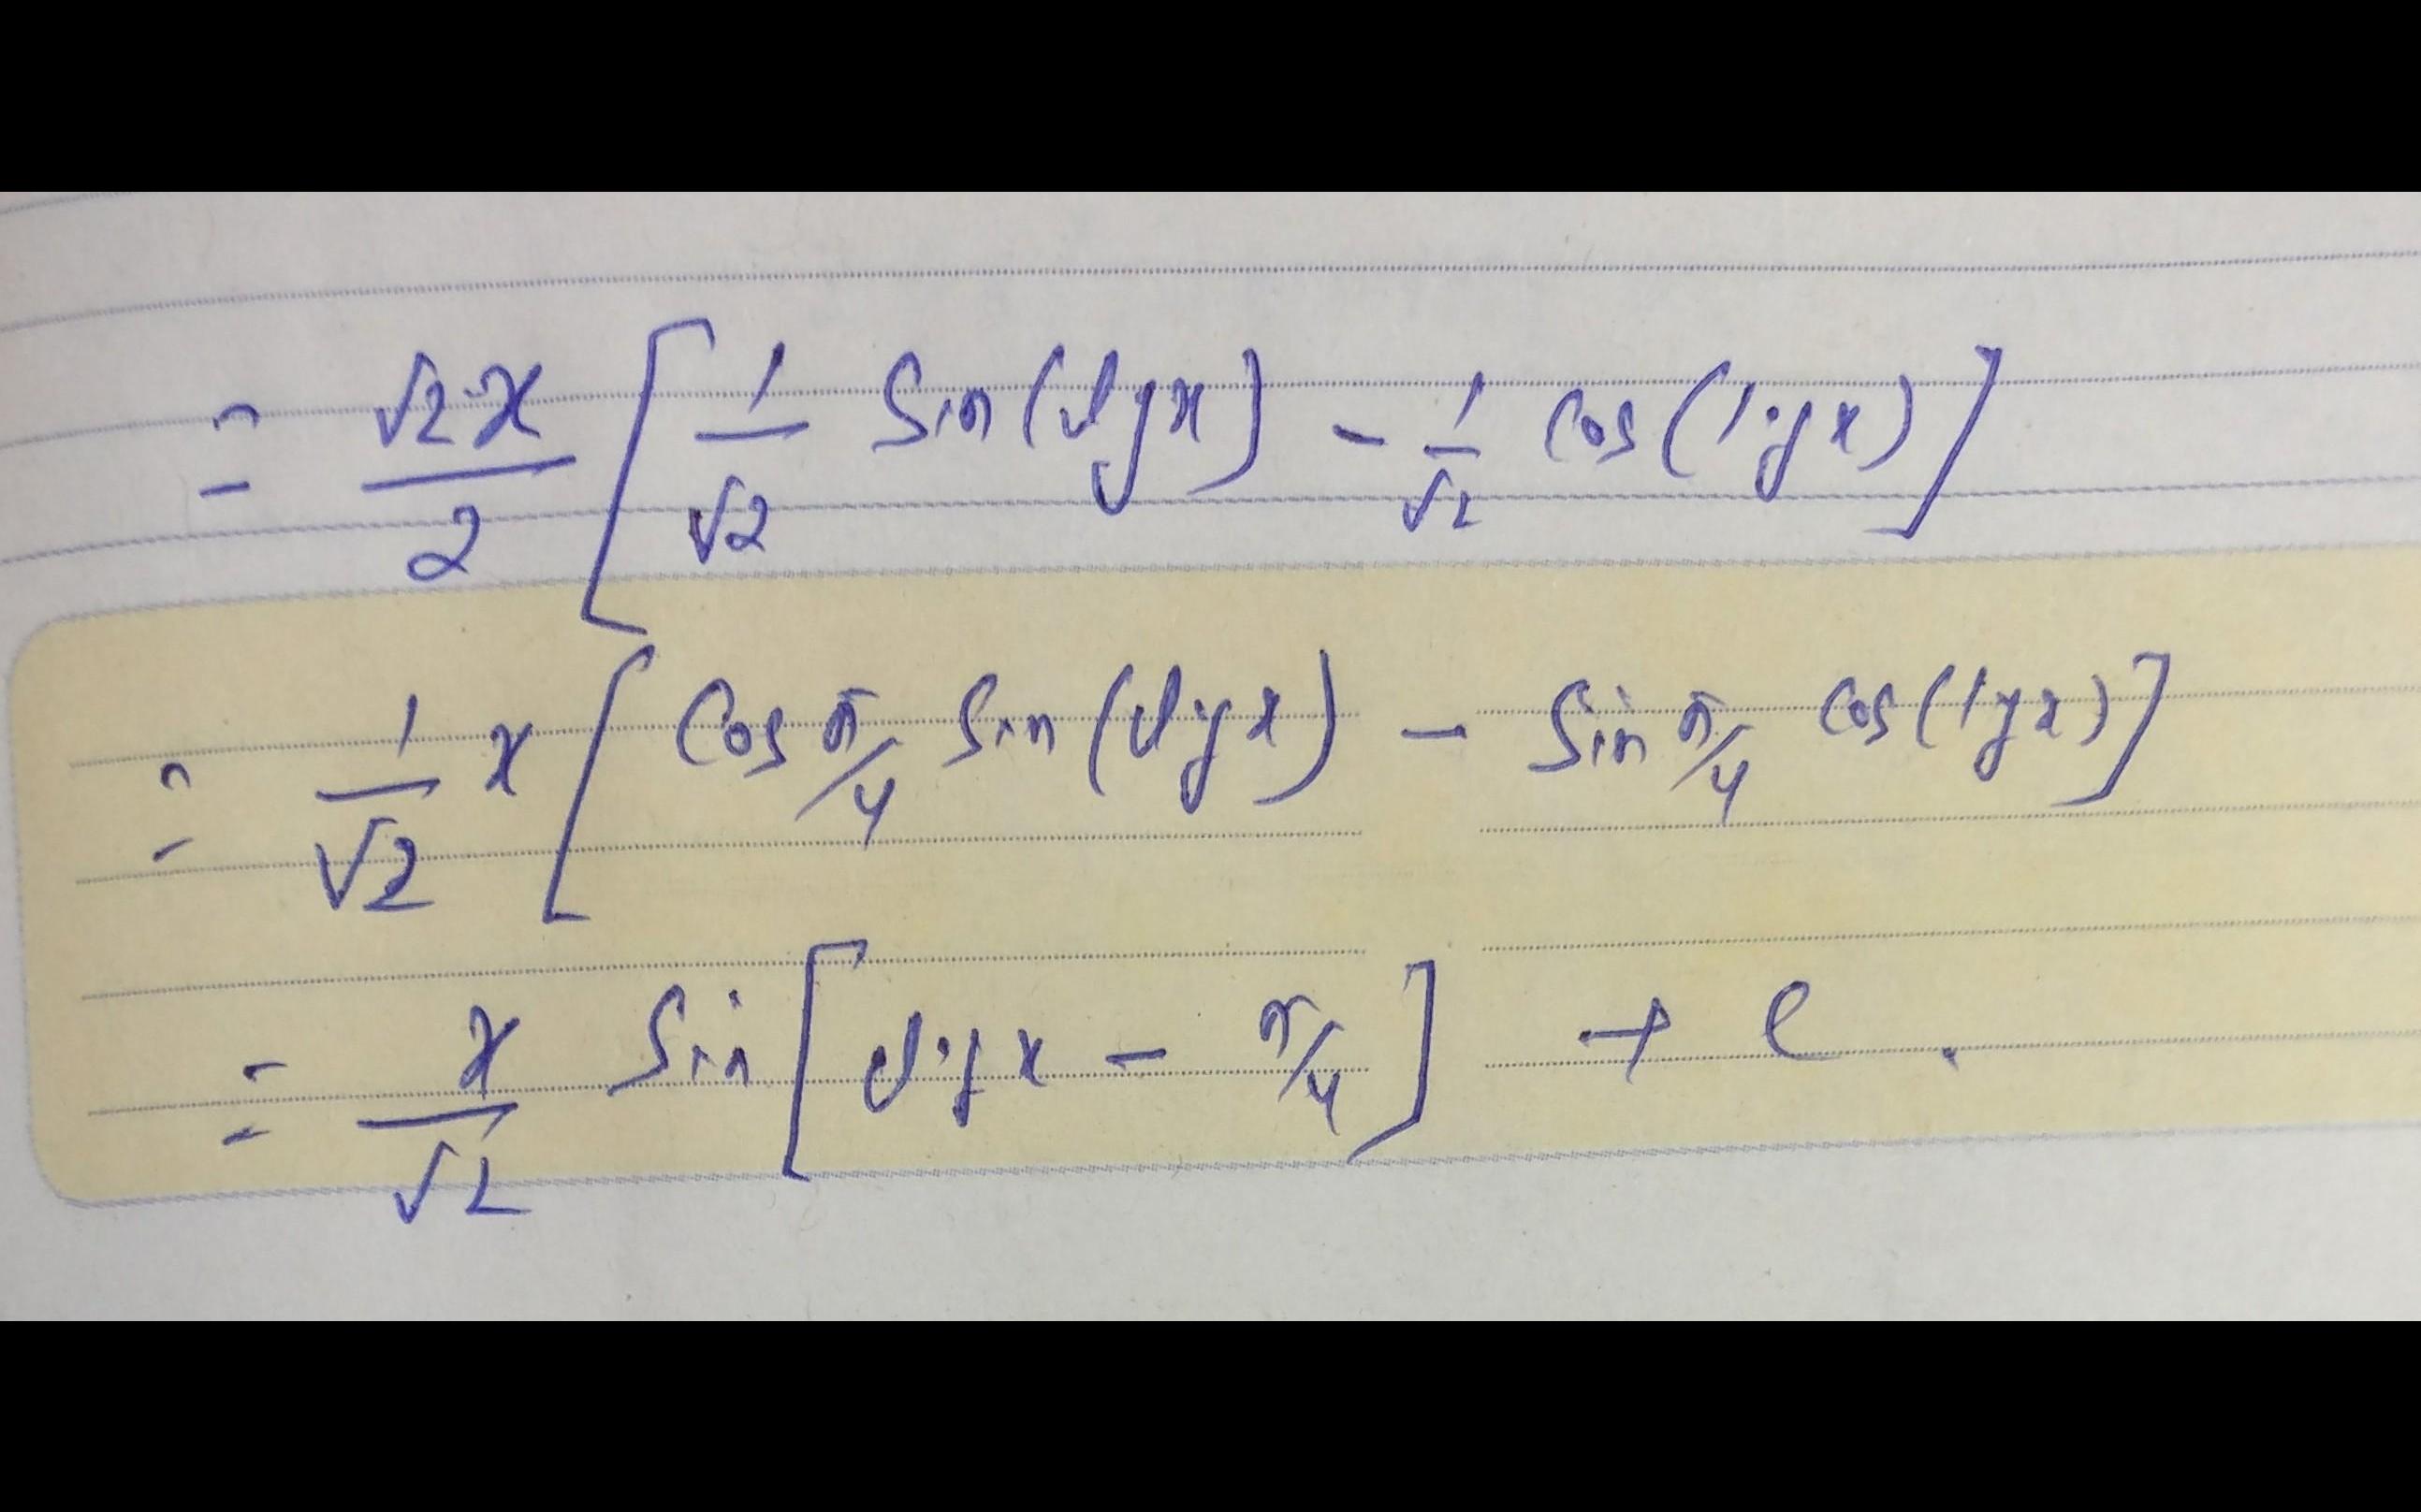 = √2x/2 [1/√2 Sin(logx) - 1/√2 Cos(logx)]
= 1/√2 x [Cos π/4 Sin(logx) - Sin π/4 Cos(logx)]
= x/√2 Sin[logx - π/4] + C.